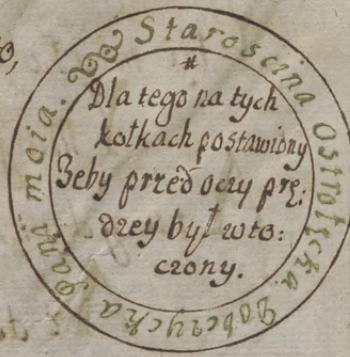 W Starościna Ostrołęcka Dobrzycka Pani moia.
#
Dla tego na tych
kołkach postawiony
Żeby przed oczy prę:
dzey był wto:
czony.